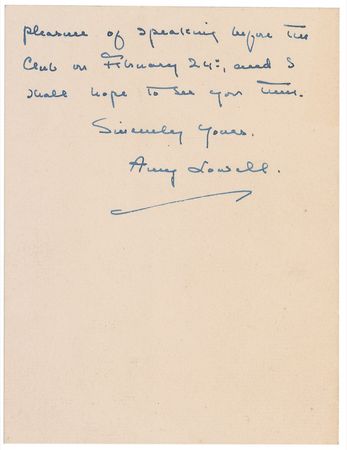 pleasure of speaking before the
Club on February 24th, and I
shall hope to see you then.
Sincerely Yours.
Amy Lowell.